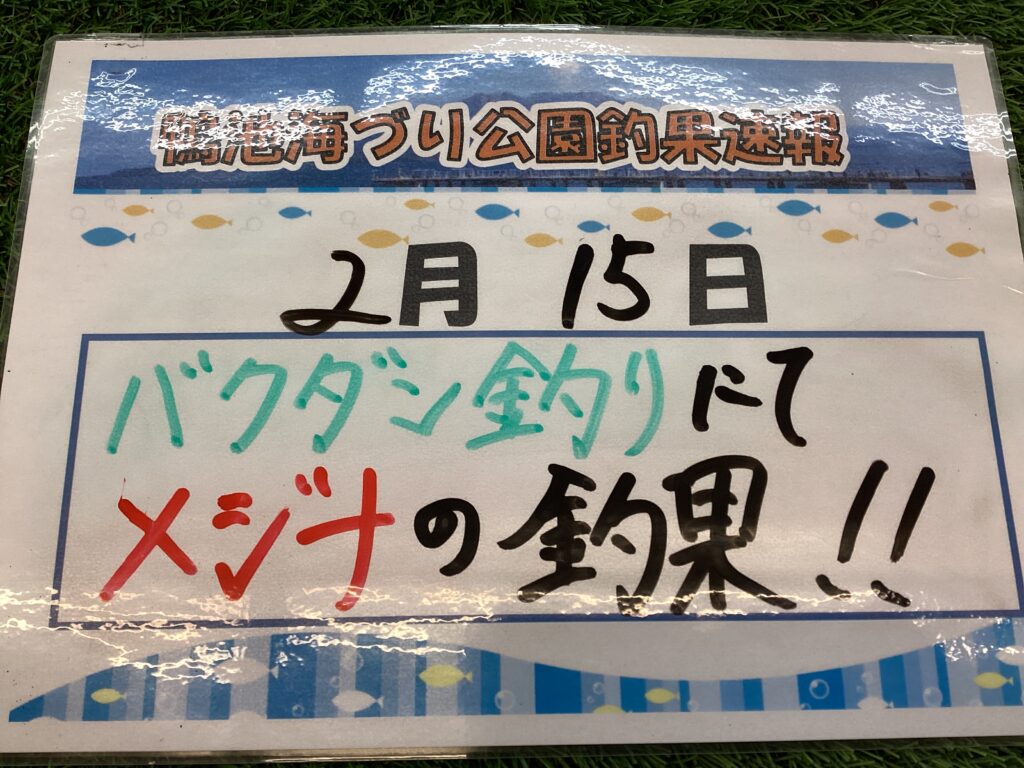 鴨池海づり公園釣果速報
2月 15日
バクダン釣りにて
メジナの釣果!!